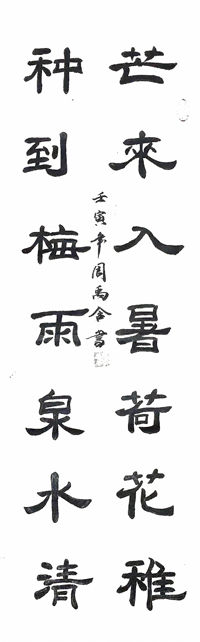 芒來入暑荷花稚
种到梅雨泉水清
壬寅年周禹含書